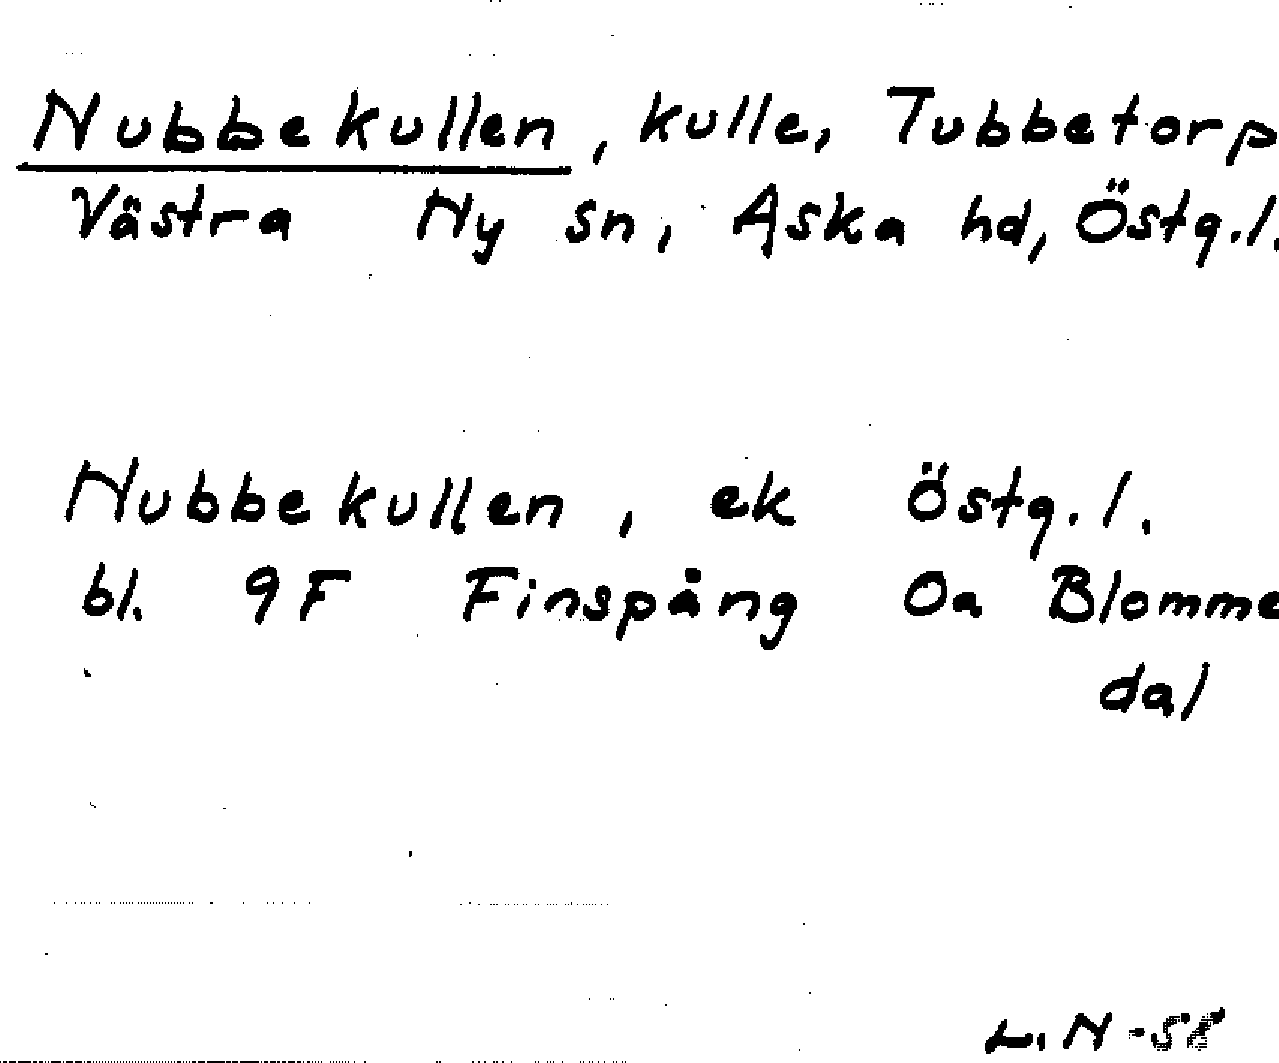 Nubbekullen, kulle, Tubbetorp
Västra Ny sn, Aska hd, Östg.l.
Nubbekullen, ek Östg.l.
bl. 9F Finspång 0a Blomme
dal
L.N -58